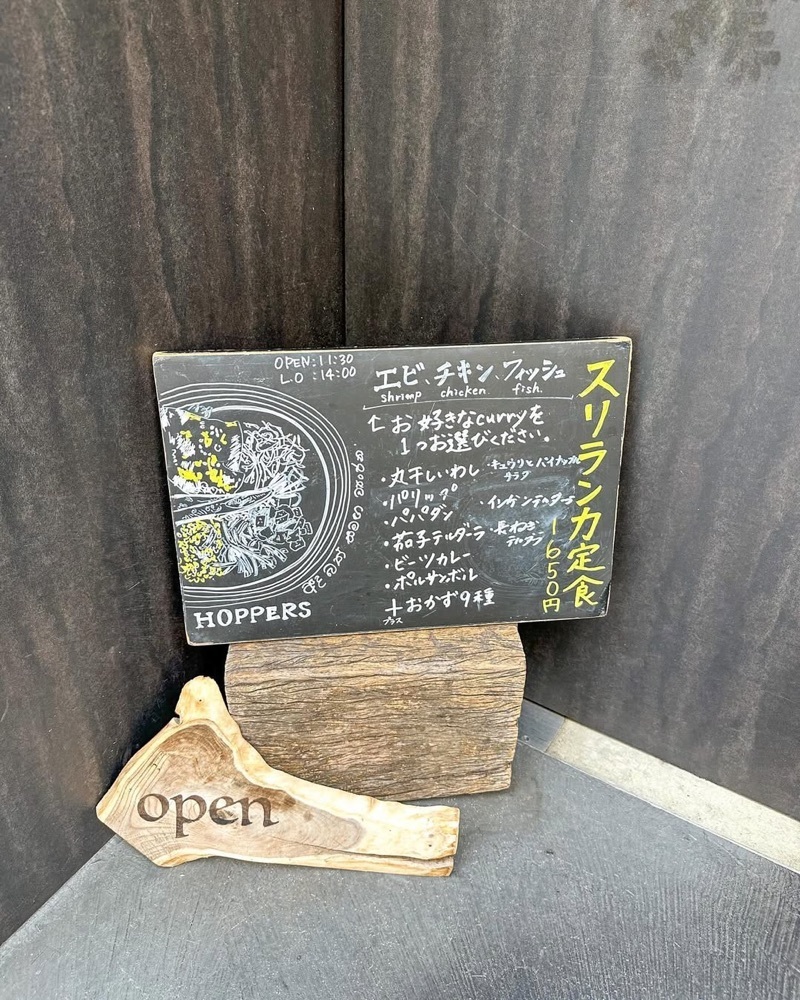 OPEN:11:30
L.O :14:00
スリランカ定食
1650円
エビ、チキン、フィッシュ
shrimp chicken. fish.
↑お好きなcurryを
1つお選びください。
・丸干しいわし
・パリップ
・パパダン
・茄子テルダーラ
・ビーツカレー
・ポルサンボル
・キュウリとパイナップル
サラダ
・インゲンテルダーラ
・長ねぎ
テルダラ
+おかず9種
プラス
HOPPERS
open